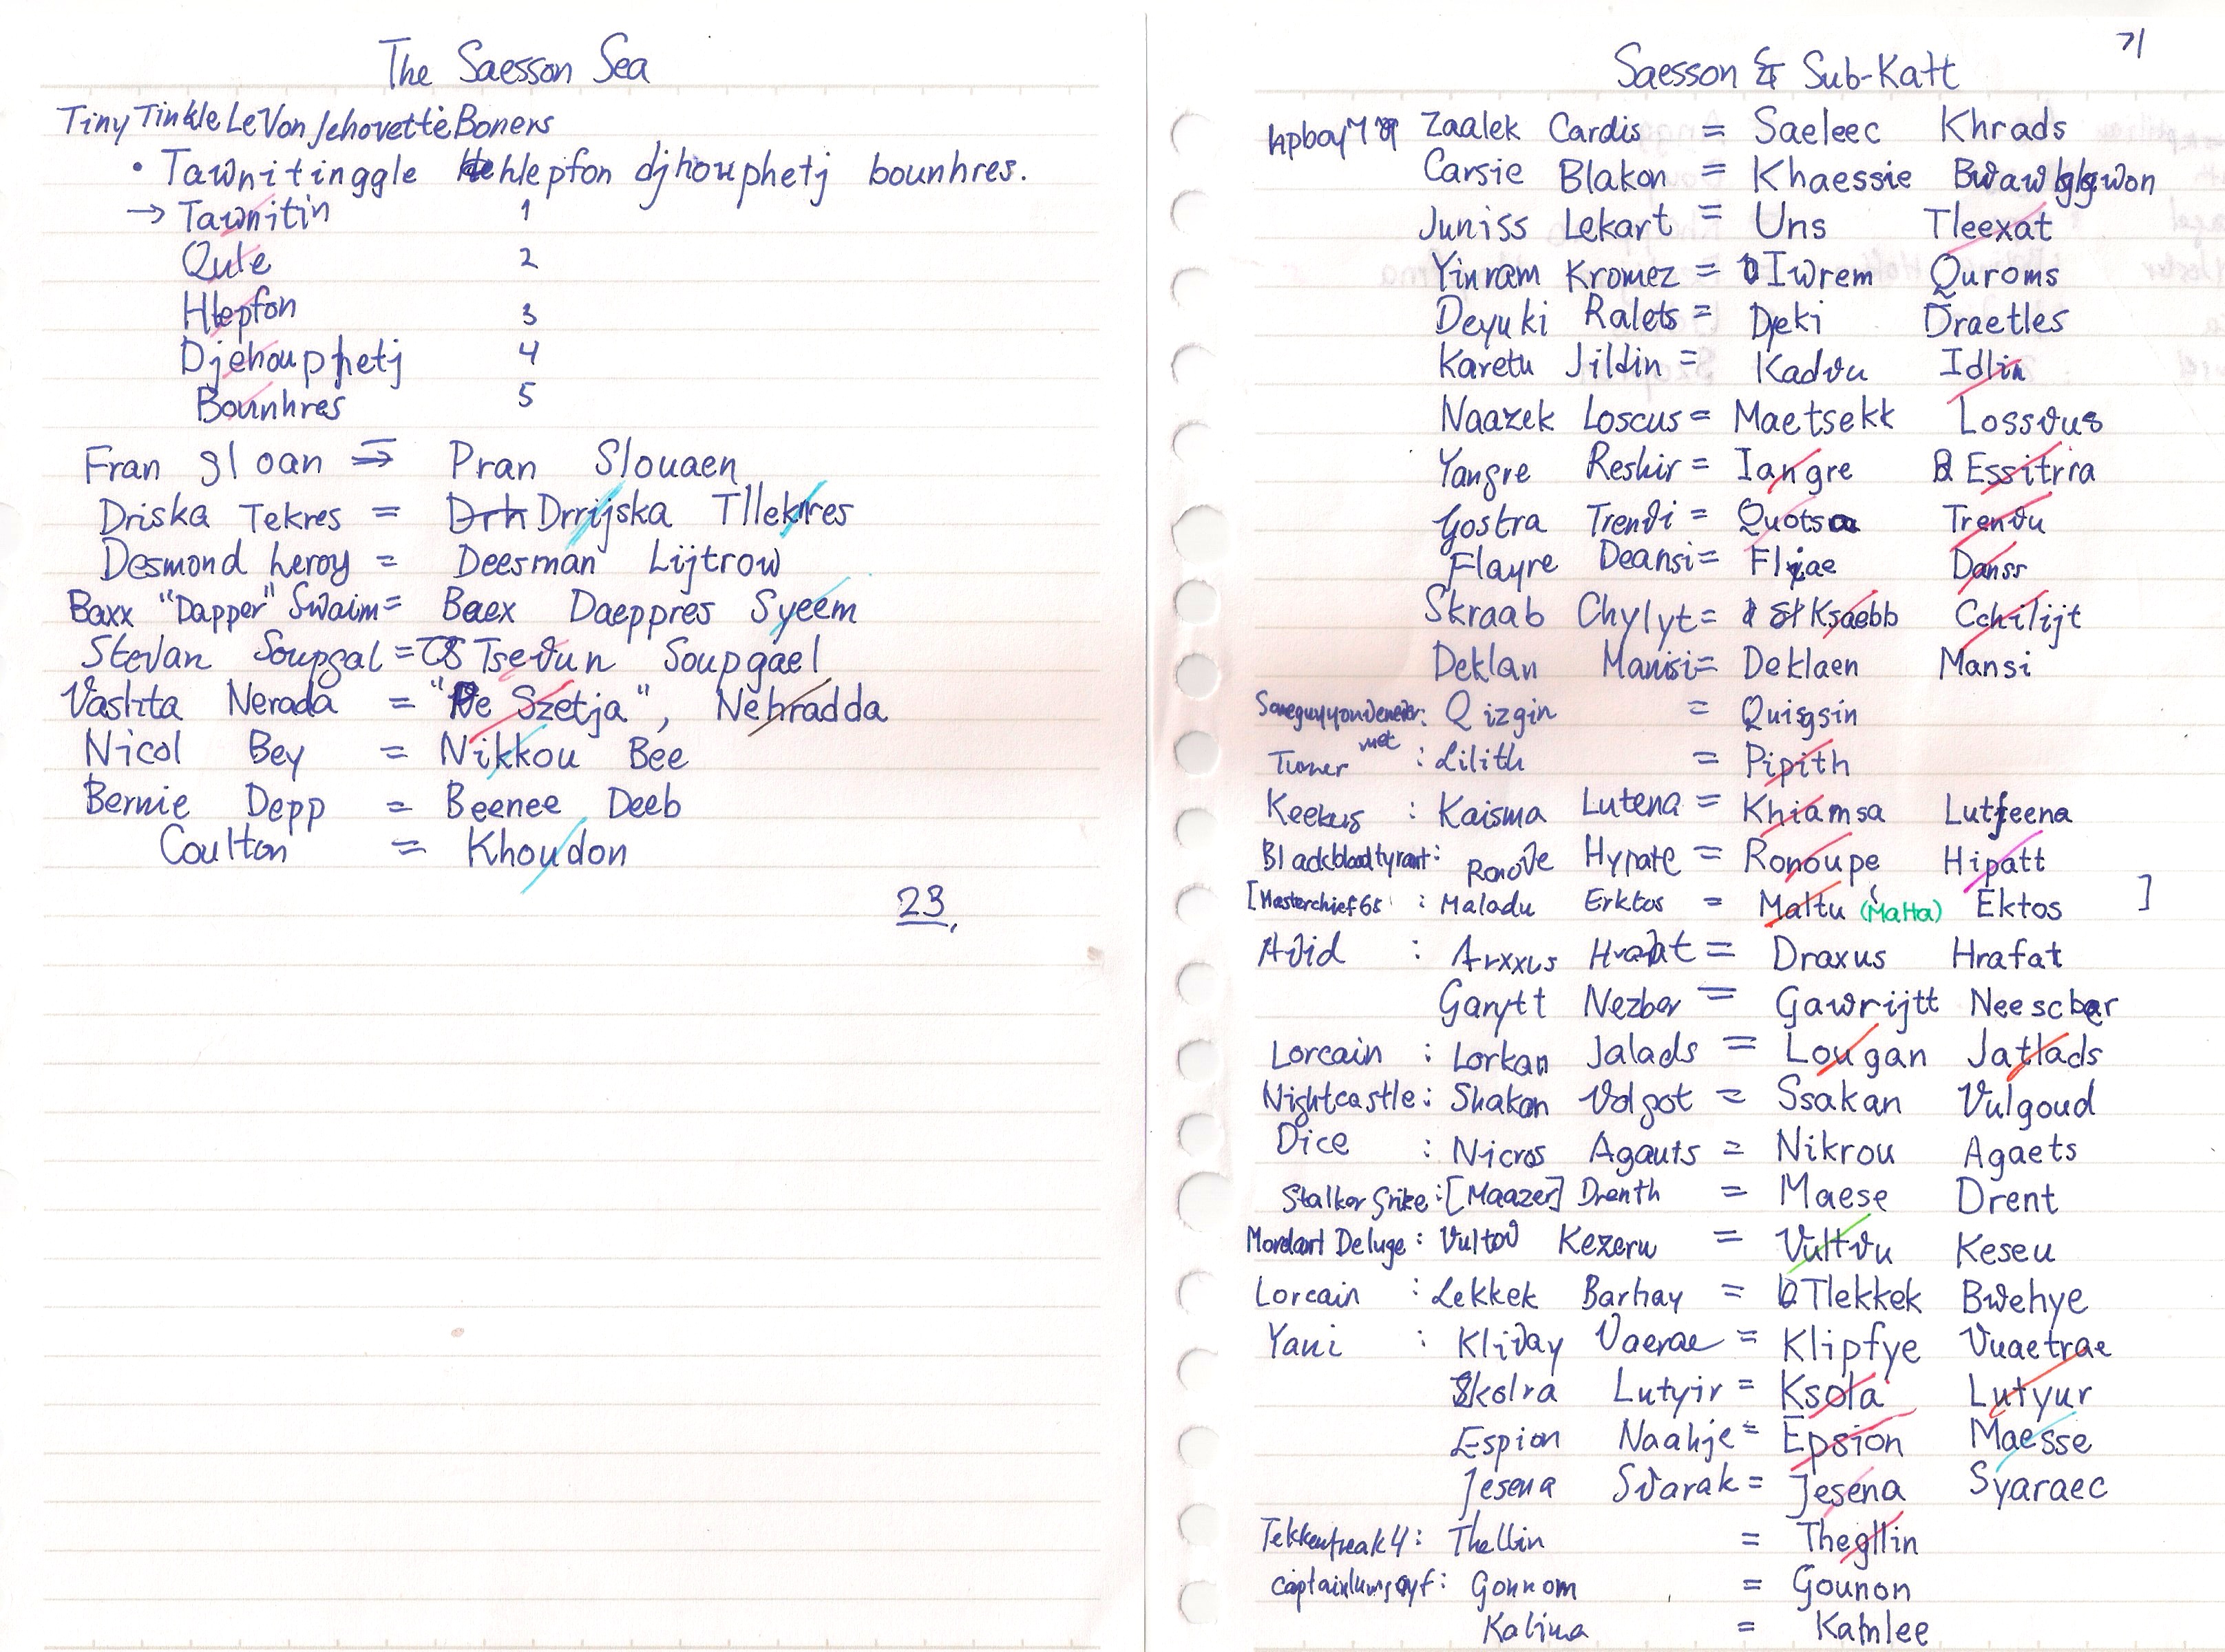 The Saesson Sea
Tiny Tinkle LeVon Jehovette Boners
• Tawnitinggle hlepfon djhouphetj bounhres.
→ Tawnitin 1
Qule 2
Hlepfon 3
Djehouphetj 4
Bounhres 5
Fran Sloan = Pran Slouaen
Driska Tekres = Drrijska Tllekres
Desmond Leroy = Deesman Lijtrow
Baxx "Dapper" Swaim = Baex Daeppres Syeem
Stevan Soupgal = Tsevun Soupgael
Vashta Nerada = "De Szetja", Nehradda
Nicol Bey = Nikkou Bee
Bernie Depp = Beenee Deeb
Coulton = Khoudon
23
71
Saesson & Sub-Katt
Zaalek Cardis = Saeleec Khrads
Carsie Blakon = Khaessie
Juniss Lekart = Uns Tleexat
Yinram Kromez = Iwrem Quroms
Deyuki Ralets = Djeki Draetles
Karetu Jildin = Kadvu Idlin
Naazek Loscus = Maetsekk Lossvus
Yangre Reshir = Iangre Essitrra
Gostra Trenvi = Quotsa Trenvu
Flayre Deansi = Flijae Danss
Skraab Chylyt = Ksaebb Cchilijt
Deklan Manisi = Deklaen Mansi
Qizgin = Quisgsin
Turner : Lilith = Pipith
Keekus : Kaisma Lutena = Khiamsa Lutfeena
Blackbloodtyrant: Ronove Hypate = Ronoupe Hipatt
[Masterchief68 : Maladu Erktos = Maltu (Malta) Ektos ]
Avid : Arxxus Hravat = Draxus Hrafat
Garytt Nezber = Gawrijtt Neescber
Lorcain : Lorkan Jalads = Lougan Jatlads
Nightcastle : Shakan Volgot = Ssakan Vulgoud
Dice : Nicros Agauts = Nikrou Agaets
Stalker Grike : [Maazer] Drenth = Maese Drent
Mordant Deluge : Vultov Kezeru = Vultvu Keseu
Lorcain : Lekkek Barhay = Tlekkek Bwehye
Yani : Klivay Vaerae = Klipfye Vuaetrae
Skolra Lutyir = Ksola Lutyur
Espion Naahje = Epsion Maesse
Jesena Svarak = Jesena Syaraec
Tekkenfreak4 : Thellin = Thegllin
Gonnom = Gounon
Kalima = Kamlee